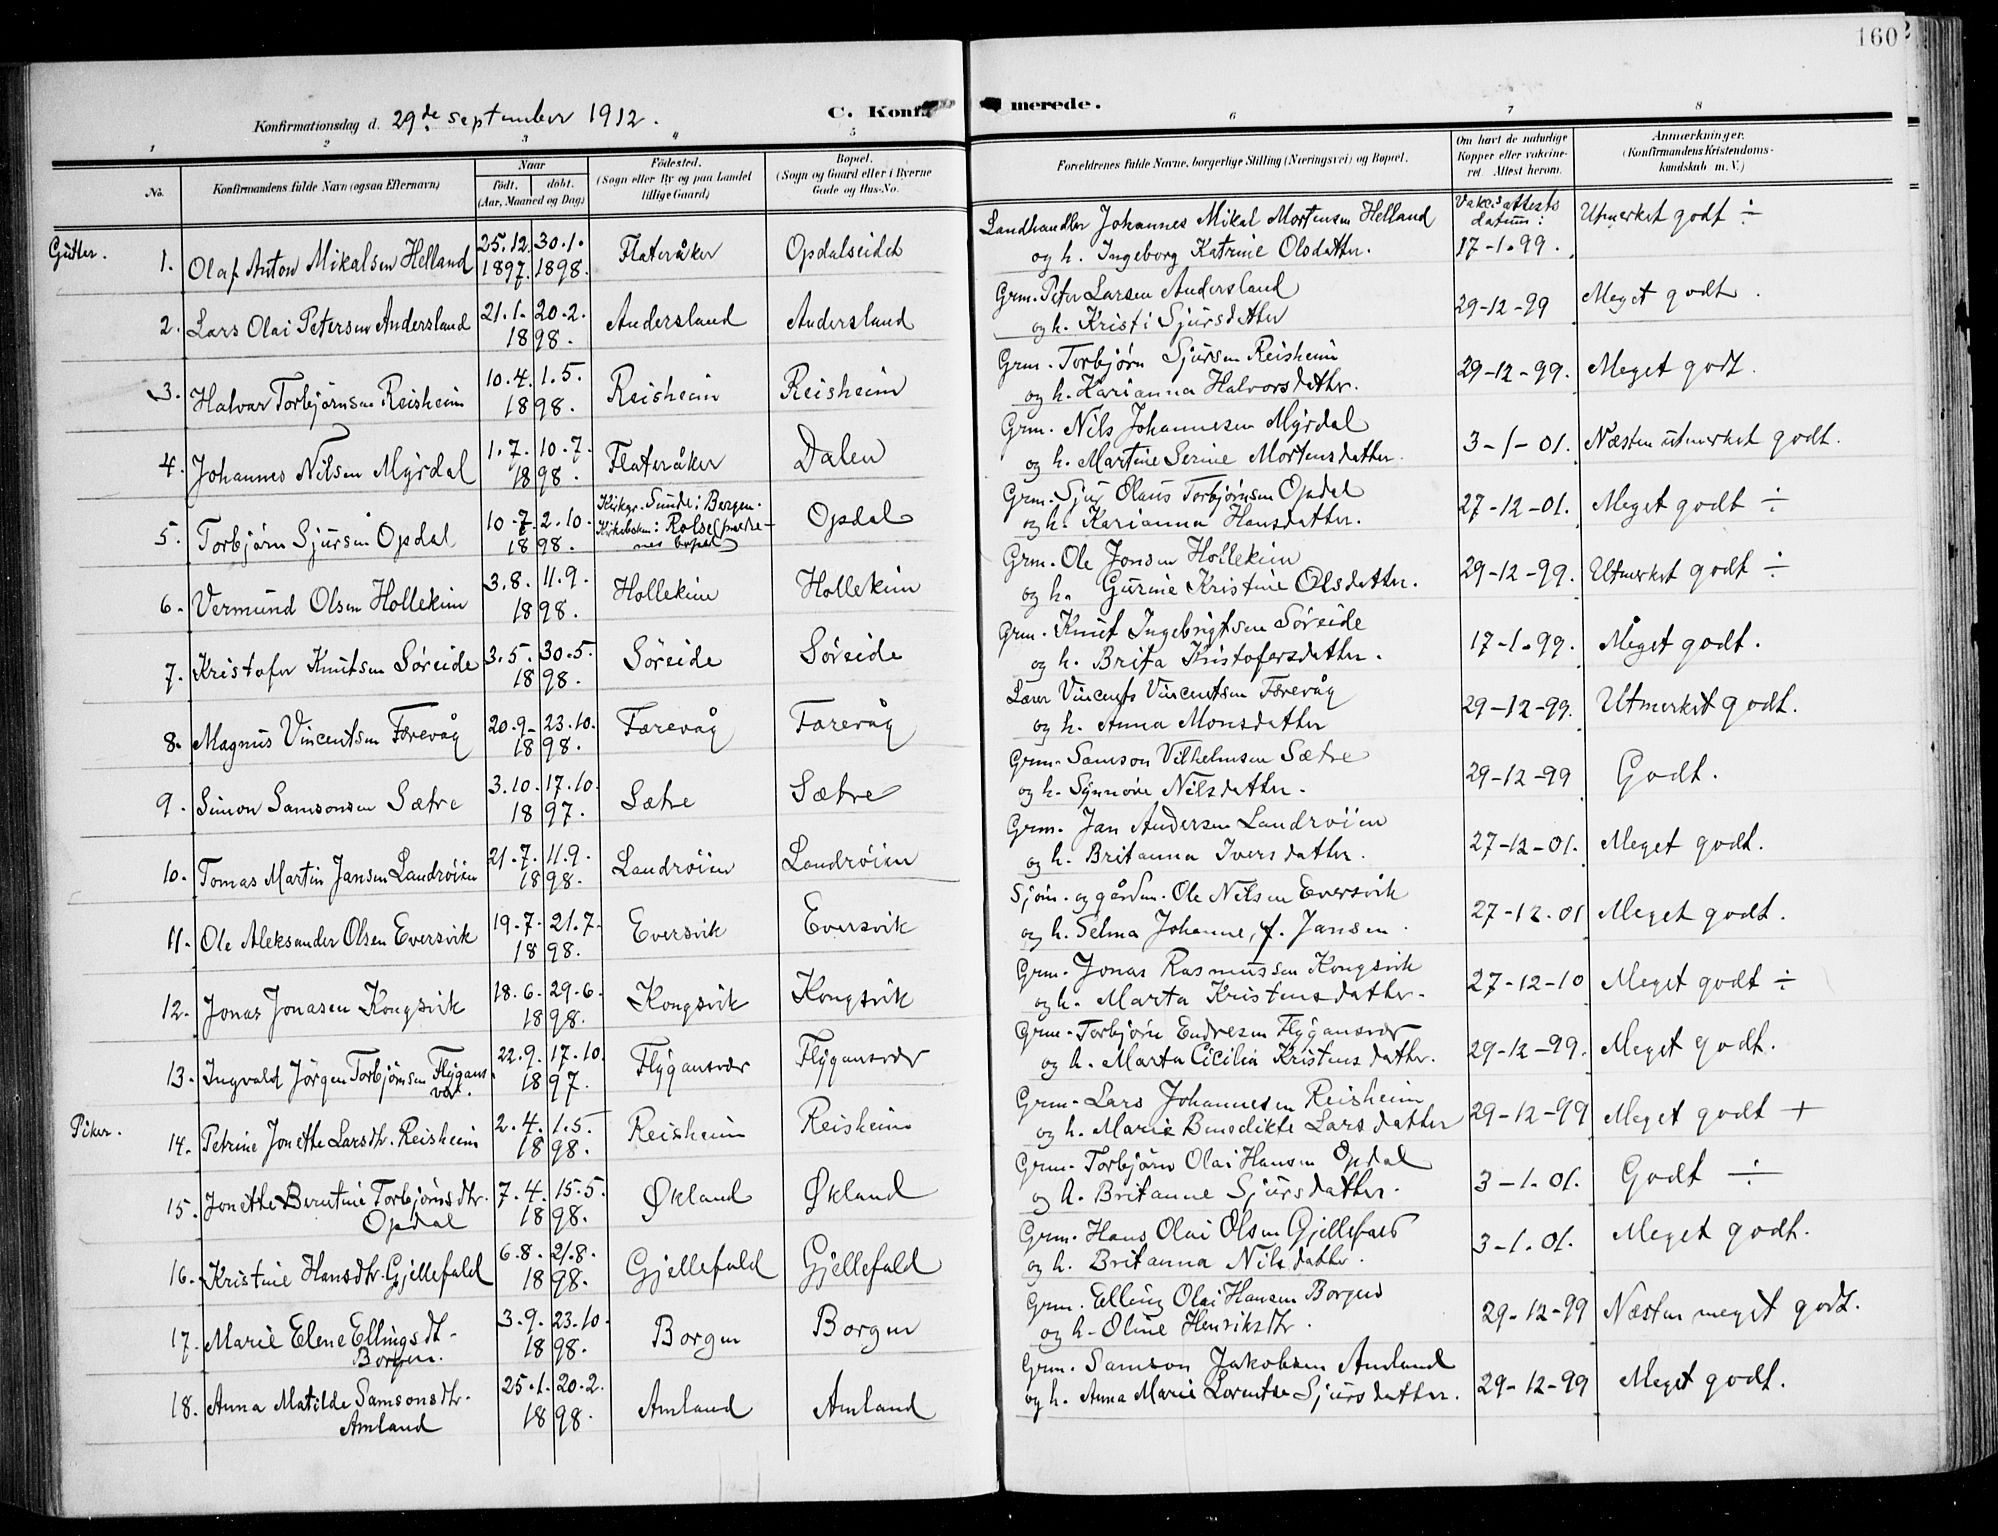 160
Konfirmationsdag d. 29de september 1912. C. Konf merede.
1 2 3 4 5 6 7 8
No. Konfirmandens fulde Navn (ogsaa Efternavn) Naar født, døbt. (Aar, Maaned og Dag) Fødested. (Sogn eller By og paa Landet tillige Gaard) Bopæl. (Sogn og Gaard eller i Byerne Gade og Hus-No. Forældrenes fulde Navne, borgerlige Stilling (Næringsvei) og Bopæl. Om havt de naturlige Kopper eller vakcineret. Attest herom. Anmærkninger. (Konfirmandens Kristendomskundskab m. V.)
Vaks.attests datum:
Gutter.
1. Olaf Anton Mikalsen Helland 25.12. 1897. 30.1. 1898. Flateråker Opdalseidet Landhandler Johannes Mikal Mortensen Helland
og h. Ingeborg Katrine Olsdatter. 17-1.99. Utmerket godt ÷
2. Lars Olai Petersen Andersland 21.1. 20.2. 1898. Andersland Andersland Grm. Peter Larsen Andersland
og h. Kristi Sjursdatter 29-12-99 Meget godt.
3. Halvar Torbjørnsen Reisheim 10.4. 1.5. 1898. Reisheim Reisheim Grm. Torbjørn Sjursen Reisheim
og h. Karianna Halvorsdatter. 29-12-99. Meget godt.
4. Johannes Nilsen Myrdal 1.7. 10.7. 1898. Flateråker Dalen Grm. Nils Johannesen Myrdal
og h. Martine Serine Mortensdatter. 3-1-01. Næsten utmerket godt.
5. Torbjørn Sjursen Opdal 10.7. 2.10. 1898. Sunde i Bergen. Opdal Grm. Sjur Olaus Torbjørnsen Opdal
og h. Karianna Hansdatter. 27-12-01. Meget godt ÷
6. Vermund Olsen Hollekim 3.8. 11.9. 1898. Hollekim Hollekim Grm. Ole Jonsen Hollekim
og h. Gurine Kristine Olsdatter. 29-12-99. Utmerket godt ÷
7. Kristofer Knutsen Søreide 3.5. 30.5. 1898. Søreide Søreide Grm. Knut Ingebrigtsen Søreide
og h. Brita Kristofersdatter. 17-1.99. Meget godt.
8. Magnus Vincentsen Færevåg 20.9. 23.10. 1898. Færevåg Færevåg Lærer Vincents Vincentsen Færevåg
og h. Anna Monsdatter 29-12-99. Utmerket godt.
9. Simon Samsonsen Sætre 3.10. 17.10. 1897. Sætre Sætre Grm. Samson Vilhelmsen Sætre
og h. Synnøve Nilsdatter. 29-12-99 Godt.
10. Tomas Martin Jansen Landrøien 21.7. 11.9. 1898. Landrøien Landrøien Grm. Jan Andersen Landrøien
og h. Britanna Iversdatter. 27-12-01. Meget godt.
11. Ole Aleksander Olsen Eversvik 19.7. 21.7. 1898. Eversvik Eversvik Sjøm. og gårdm. Ole Nilsen Eversvik
og h. Selma Johanne, f. Jansen. 27-12.01 Meget godt.
12. Jonas Jonasen Kongsvik 18.6. 29.6. 1898. Kongsvik Kongsvik Grm. Jonas Rasmussen Kongsvik
og h. Marta Kristensdatter. 27-12-10 Meget godt ÷
13. Ingvald Jørgen Torbjørnsen Flygansvær. 22.9. 17.10. 1897. Flygansvær Flygansvær Grm. Torbjørn Endresen Flygansvær
og h. Marta Cicilia Kristensdatter. 29-12-99. Meget godt.
Piker.
14. Petrine Jonette Larsdtr. Reisheim 2.4. 1.5. 1898. Reisheim Reisheim Grm. Lars Johannesen Reisheim
og h. Marie Benedikte Larsdatter 29-12-99 Meget godt +
15. Jonette Berntine Torbjørnsdtr. Opdal 7.4. 15.5. 1898. Økland Økland Grm. Torbjørn Olai Hansen Opdal
og h. Britanne Sjursdatter. 3-1.01. Godt ÷
16. Kristine Hansdtr. Gjellefald 6.8. 21.8. 1898. Gjellefald Gjellefald Grm. Hans Olai Olsen Gjellefald
og h. Britanna Nilsdatter. 3-1.01. Meget godt.
17. Marie Elene Ellingsdt. Borgen. 3.9. 23.10. 1898. Borgen Borgen Grm. Elling Olai Hansen Borgen
og h. Oline Henriksdtr. 29-12-99 Næsten meget godt.
18. Anna Matilde Samsonsdtr. Amland 25.1. 20.2. 1898. Amland Amland Grm. Samson Jakobsen Amland
og h. Anna Marie Lorentse Sjursdatter. 29-12-99 Meget godt.